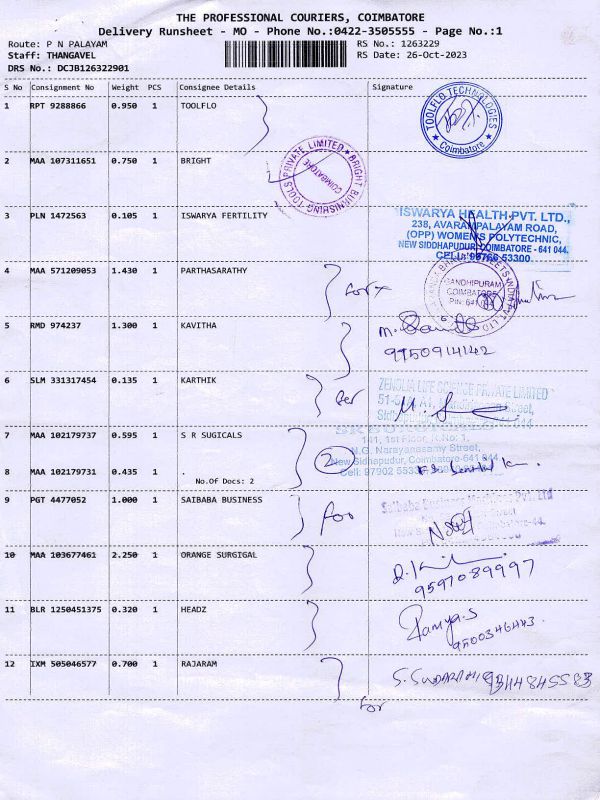 THE PROFESSIONAL COURIERS, COIMBATORE
Delivery Runsheet - MO - Phone No.:0422-3505555 - Page No.:1
Route: P N PALAYAM RS No.: 1263229
Staff: THANGAVEL RS Date: 26-Oct-2023
DRS No.: DCJB126322901
S No Consignment No Weight PCS Consignee Details Signature
1 RPT 9288866 0.950 1 TOOLFLO
TOOLFLO TECHNOLOGIES
Coimbatore
2 MAA 107311651 0.750 1 BRIGHT
BRIGHT BURNISHING TOOLS PRIVATE LIMITED
COIMBATORE
3 PLN 1472563 0.105 1 ISWARYA FERTILITY
ISWARYA HEALTH PVT. LTD.,
238, AVARAMPALAYAM ROAD,
(OPP) WOMEN'S POLYTECHNIC,
NEW SIDDHAPUDUR, COIMBATORE - 641 044.
CELL: 09766 53300
4 MAA 571209053 1.430 1 PARTHASARATHY
for
GANDHIPURAM
COIMBATORE
PIN: 641
5 RMD 974237 1.300 1 KAVITHA
9150914142
6 SLM 331317454 0.135 1 KARTHIK
for
ZENOLIA LIFE SCIENCE PRIVATE LIMITED
7 MAA 102179737 0.595 1 S R SUGICALS
2
141, 1st Floor,
N.G. Narayanasamy Street,
New Sidhapudur, Coimbatore-641 044
8 MAA 102179731 0.435 1 .
No.Of Docs: 2
9 PGT 4477052 1.000 1 SAIBABA BUSINESS
for
10 MAA 103677461 2.250 1 ORANGE SURGIGAL
9597089997
11 BLR 1250451375 0.320 1 HEADZ
Ramya.S
9500346443.
12 IXM 505046577 0.700 1 RAJARAM
for